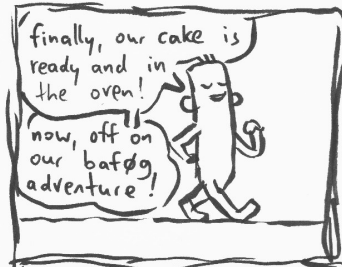 finally, our cake is
ready and in
the oven!
now, off on
our baføg
adventure!